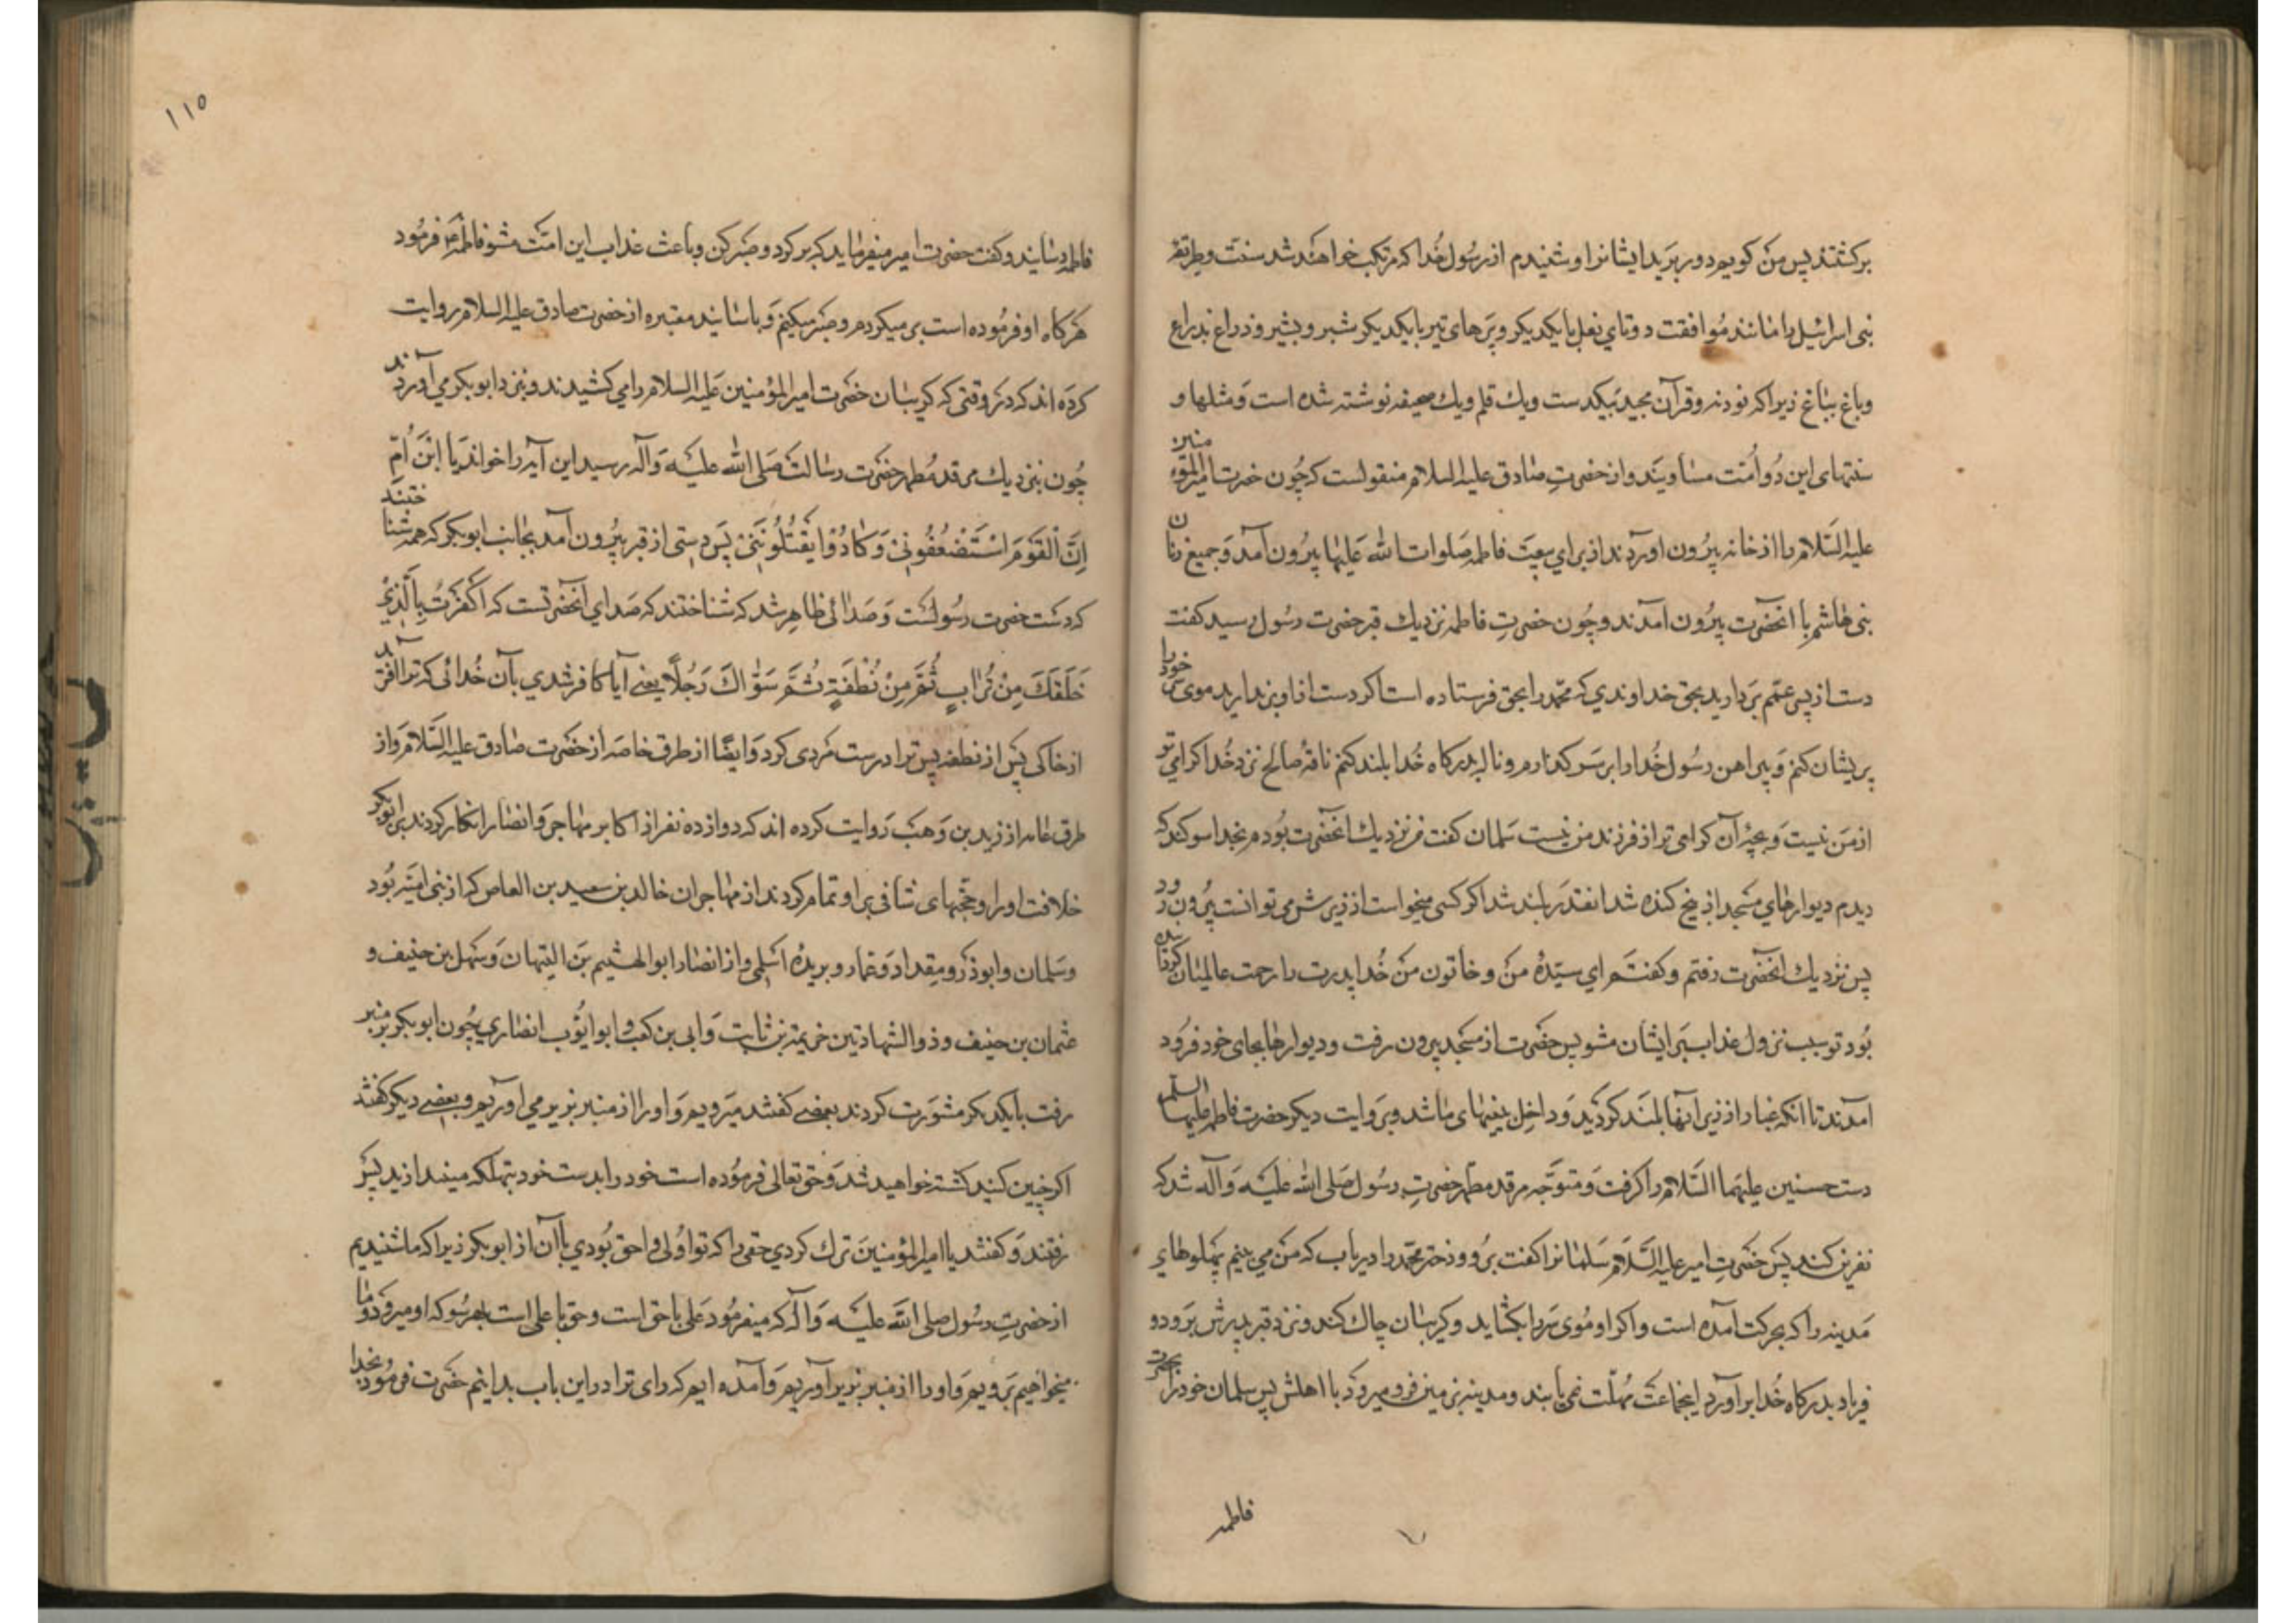 برکشتند پس من کویم دور برید ایشانرا و شنیدم از رسول خدا که مرتکب خواهند شد سنت و طریقه
بنی اسرائیل را مانند موافقت دوتای نعل با یکدیکر و پرهای تیر با یکدیکر شبر و بشبر و ذراع بذراع
و باغ بباغ زیرا که تورته و قرآن مجید بیکدست و یك قلم و یك صحیفه نوشته شده است و مثلها و
سنتهای این دو امت مساویند و از حضرت صادق علیه السلام منقولست که چون حضرت امیرالمؤمنین
علیه السلام را از خانه بیرون اوردند از برای بیعت فاطمه صلوات الله علیها بیرون آمد و جمیع زنان
بنی هاشم با انحضرت بیرون آمدند و چون حضرت فاطمه نزدیك قبر حضرت رسول رسید کفت
دست از پسر عمم بردارید بحق خداوندی که محمد را بحق فرستاده است اکر دست از او برندارید موی سر خود را
پریشان کنم و پیراهن رسول خدا را بر سر کذارم و ناله بدرکاه خدا بلند کنم ناقه صالح نزد خدا کرامی تر
از من نیست و بچه آن کرامی تر از فرزند من نیست سلمان کفت من نزدیك انحضرت بودم بخدا سوکند که
دیدم دیوارهای مسجد از بیخ کنده شد انقدر بلند شد اکر کسی میخواست از زیرش می توانست بیرون رود
پس نزدیك انحضرت رفتم و کفتم ای سیده من و خاتون من خدا پدرت را رحمت عالمیان کردانیده
بود تو سبب نزول عذاب بر ایشان مشو پس حضرت از مسجد بیرون رفت و دیوارها بجای خود فرود
آمدند تا انکه غبار از زیر آنها بلند کردید و داخل بینیهای ما شد و بروایت دیکر حضرت فاطمه علیها السلم
دست حسنین علیهما السلام را کرفت و متوجه مرقد مطهر حضرت رسول صلی الله علیه وآله شد که
نفرین کند پس حضرت امیر علیه السلام سلمانرا کفت برو و دختر محمد را دریاب که من می بینم پهلوهای
مدینه را که بحرکت آمده است و اکر او موی سر را بکشاید و کریبان چاك کند و نزد قبر پدرش برود و
فریاد بدرکاه خدا برآورد اینجماعت مهلت نمی یابند و مدینه بزمین فرو میرود با اهلش پس سلمان خود را بحضرت
فاطمه
۱۱۵
فاطمه رسانید و کفت حضرت امیر میفرماید که برکرد و صبر کن و باعث عذاب این امت مشو فاطمه ع فرمود
هرکاه او فرموده است برمیکردم و صبر میکنم و باسانید معتبره از حضرت صادق علیه السلام روایت
کرده اند که در وقتی که کریبان حضرت امیرالمؤمنین علیه السلام را می کشیدند و بنزد ابوبکر می آوردند
چون بنزدیك مرقد مطهر حضرت رسالت صلی الله علیه وآله رسید این آیه را خواند یا ابن ام
ان القوم استضعفونی وکادوا یقتلوننی پس دستی از قبر بیرون آمد بجانب ابوبکر که همه شناختند
که دست حضرت رسولست و صدائی ظاهر شد که شناختند که صدای آنحضرتست که اکفرت بالذی
خلقك من تراب ثم من نطفة ثم سوّاك رجلا یعنی آیا کافر شدی بآن خدائی که ترا آفرید
از خاکی پس از نطفه پس ترا درست مردی کرد و ایضا از طرق خاصه از حضرت صادق علیه السلام و از
طرق عامه از زید بن وهب روایت کرده اند که دوازده نفر از اکابر مهاجر و انصار انکار کردند بر ابوبکر
خلافت او را و حجتهای شافی بر او تمام کردند از مهاجران خالد بن سعید بن العاص که از بنی امیه بود
و سلمان و ابوذر و مقداد و عمار و بریده اسلمی و از انصار ابوالهیثم بن التیهان و سهل بن حنیف و
عثمان بن حنیف و ذوالشهادتین خزیمة بن ثابت و ابی بن کعب و ابو ایوب انصاری چون ابوبکر بر منبر
رفت با یکدیکر مشورت کردند بعضی کفتند میرویم و او را از منبر بزیر می آوریم و بعضی دیکر کفتند
اکر چنین کنید کشته خواهید شد و حق تعالی فرموده است خود را بدست خود بتهلکه میندازید پس
رفتند و کفتند یا امیرالمؤمنین ترك کردی حقی را که تو اولی و احق بودی باآن از ابوبکر زیرا که ما شنیدیم
از حضرت رسول صلی الله علیه وآله که میفرمود علی با حق است و حق با علی است بهرسو که او میرود و ما
میخواهیم برویم و او را از منبر بزیر آوریم و آمده ایم که رای ترا در این باب بدانیم حضرت فرمود بخدا